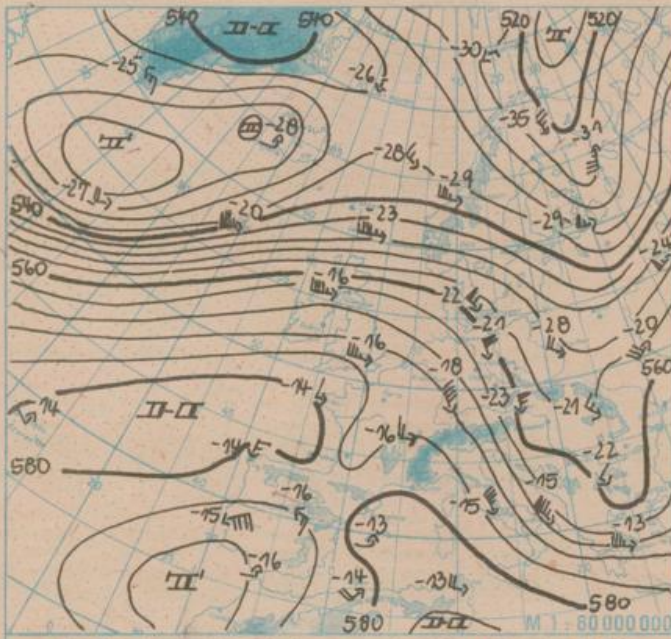 540 540 520 520
-25 -26 -30
-28 -35 -31
-28 -29
-27 -20 -23 -29
540 -24
560 -16 22
-21 -28 -29
-16 -18 560
14 -14 -23 -21
-14 -16 -22
580
-16 -15 -15
-15 -13 -13
-16 -14 -13
580 580
M 1 : 80 000 000